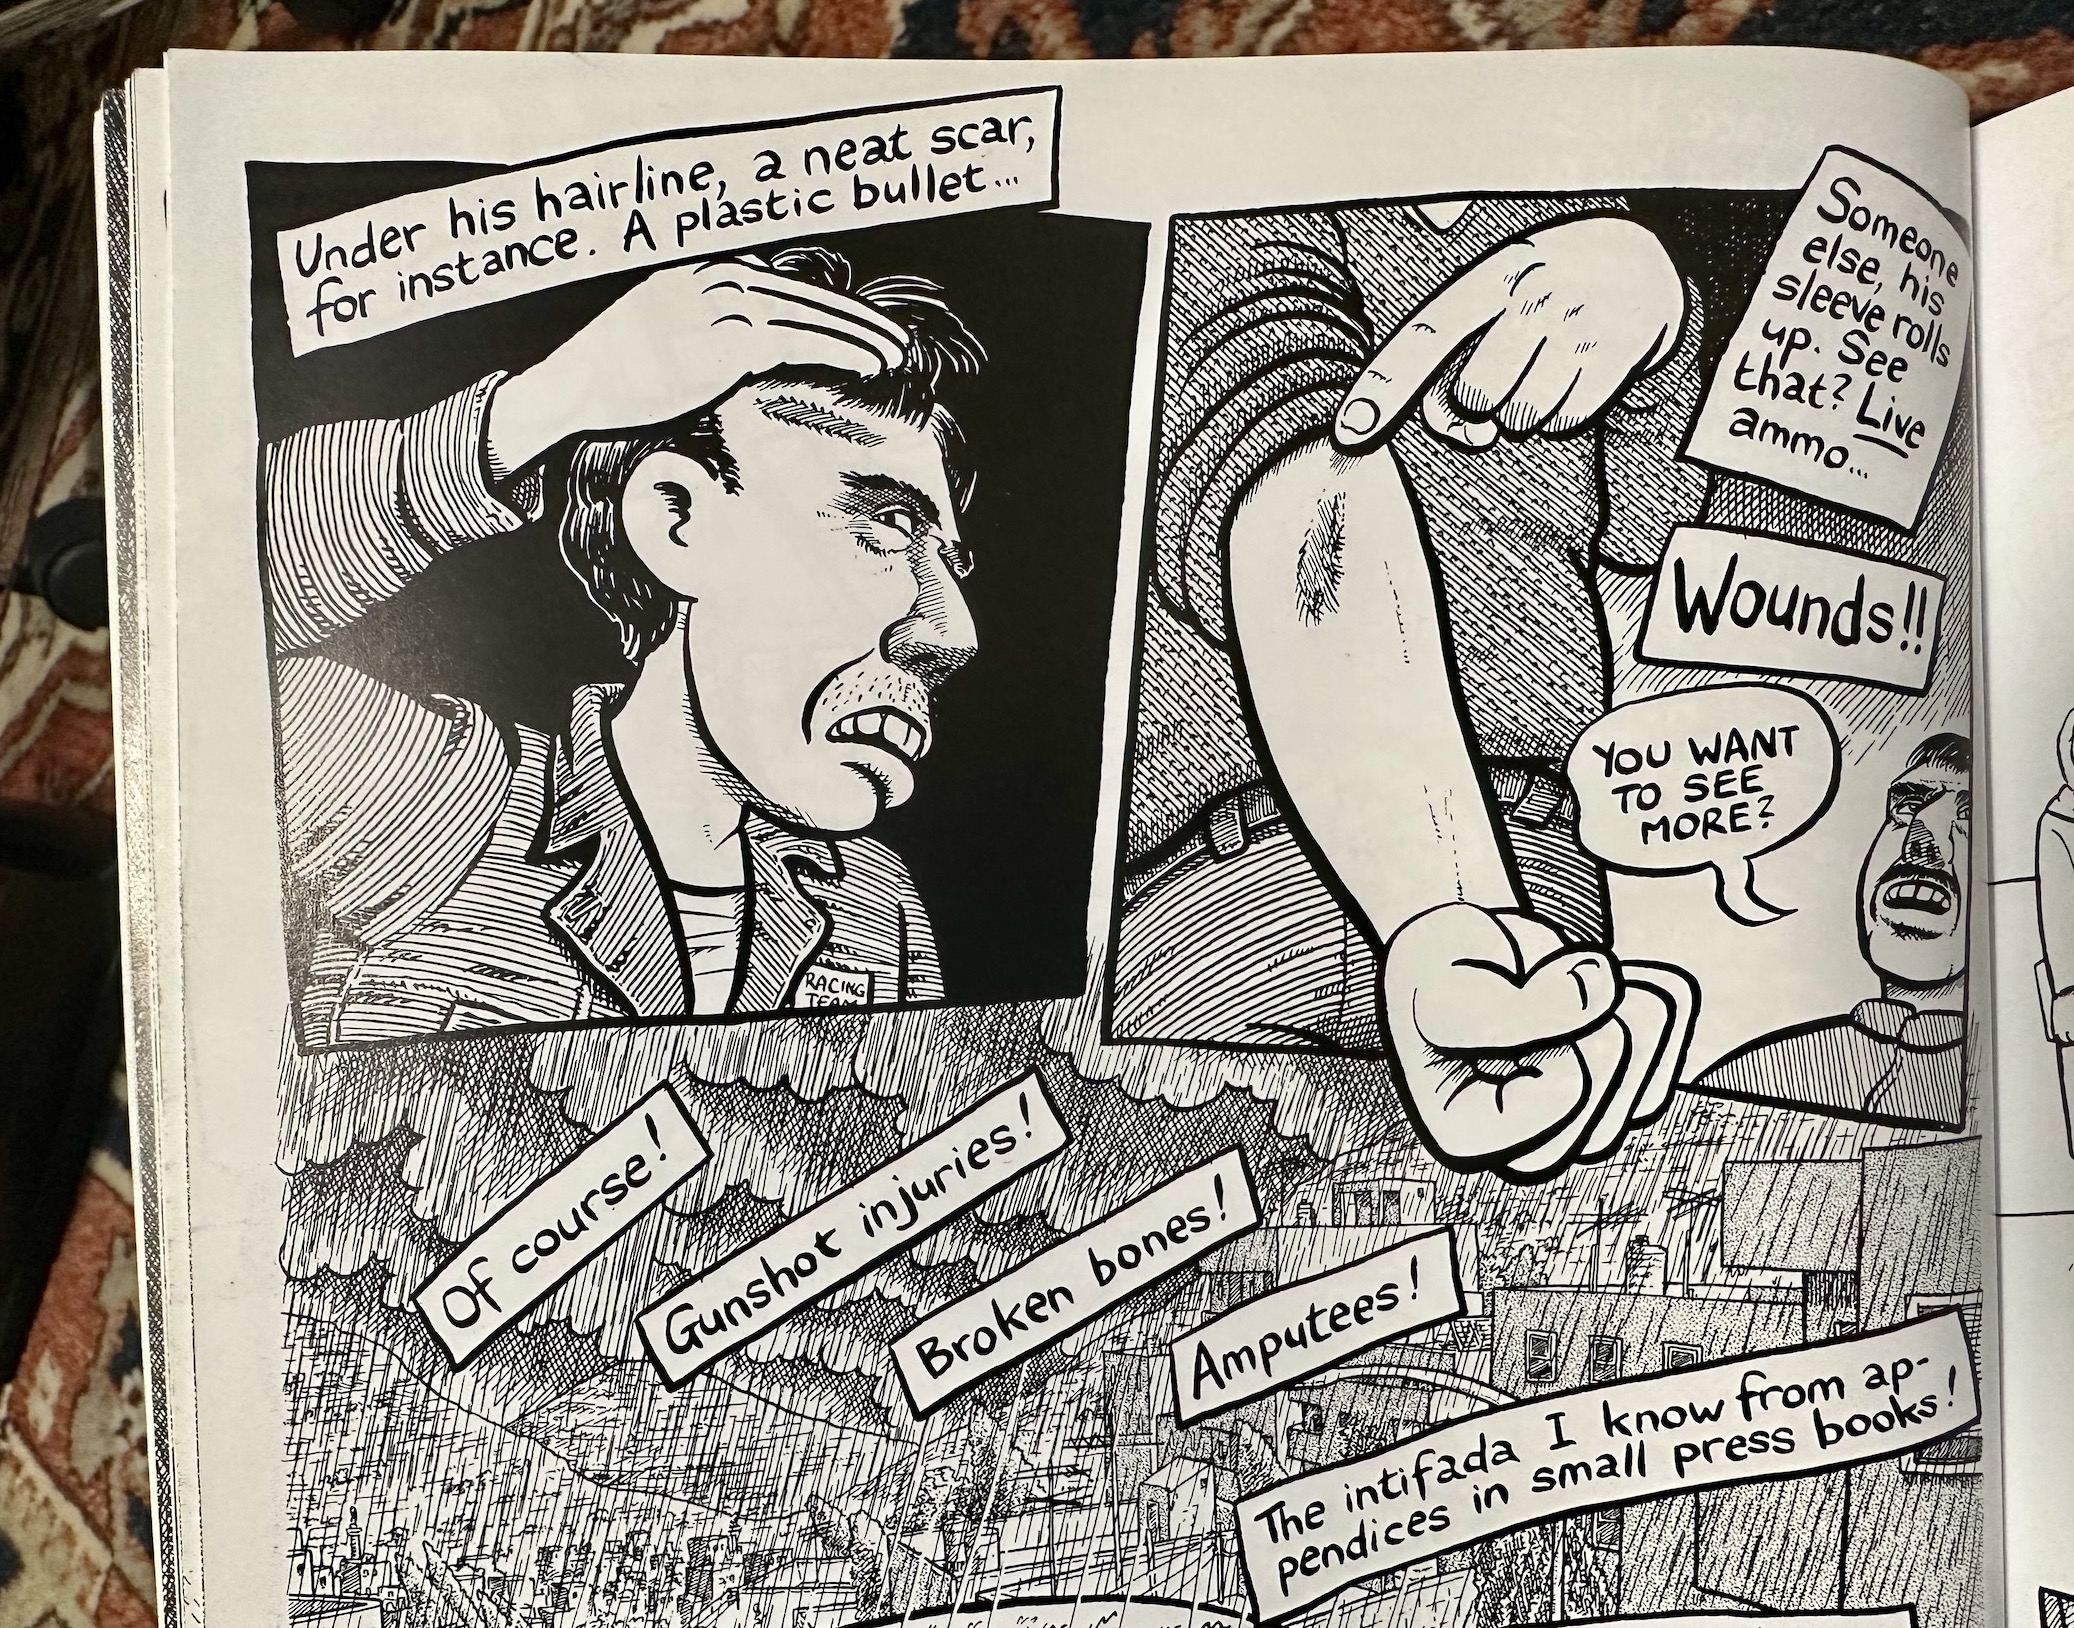 Under his hairline, a neat scar,
for instance. A plastic bullet...
RACING
TEAM
Someone
else, his
sleeve rolls
up. See
that? Live
ammo...
Wounds!!
YOU WANT
TO SEE
MORE?
Of course!
Gunshot injuries!
Broken bones!
Amputees!
The intifada I know from ap-
pendices in small press books!